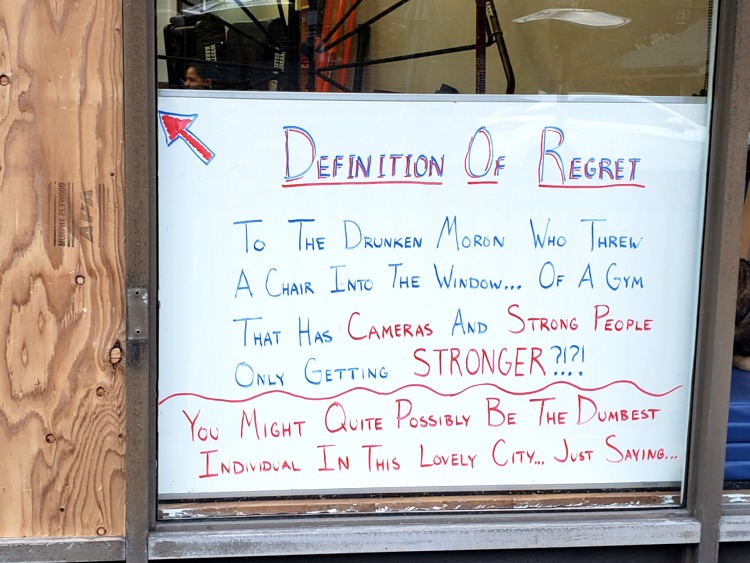 Definition Of Regret
To The Drunken Moron Who Threw
A Chair Into The Window... Of A Gym
That Has Cameras And Strong People
Only Getting STRONGER?!?!
You Might Quite Possibly Be The Dumbest
Individual In This Lovely City... Just Saying...
MURPHY PLYWOOD
APA